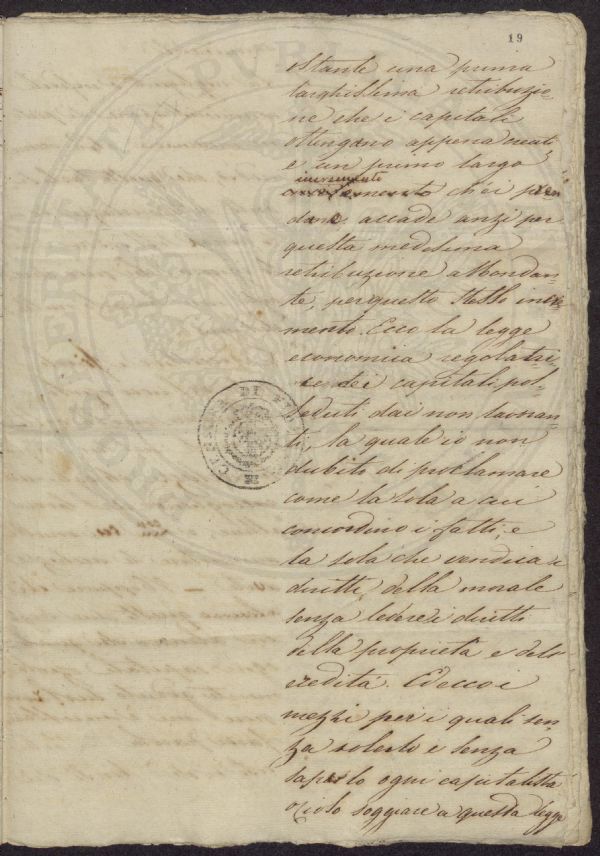 19
ostante una prima
larghissima retribuzio=
ne che i capitali
ottengano appena creati
e un primo largo
incremento
ch'ei pren
dano accade anzi per
questa medesima
retribuzione abbondan=
te, per questo stesso incre=
mento. Ecco la legge
economica regolatri=
ce dei capitali pos=
seduti dai non lavoran=
ti, la quale io non
dubito di proclamare
come la sola a cui
concordino i fatti, e
la sola che vendica i
diritti della morale
senza ledere i diritti
della proprietà e dell'
eredità. Ed ecco i
mezzi per i quali sen=
za volerlo e senza
saperlo ogni capitalista
ozioso soggiace a questa legge